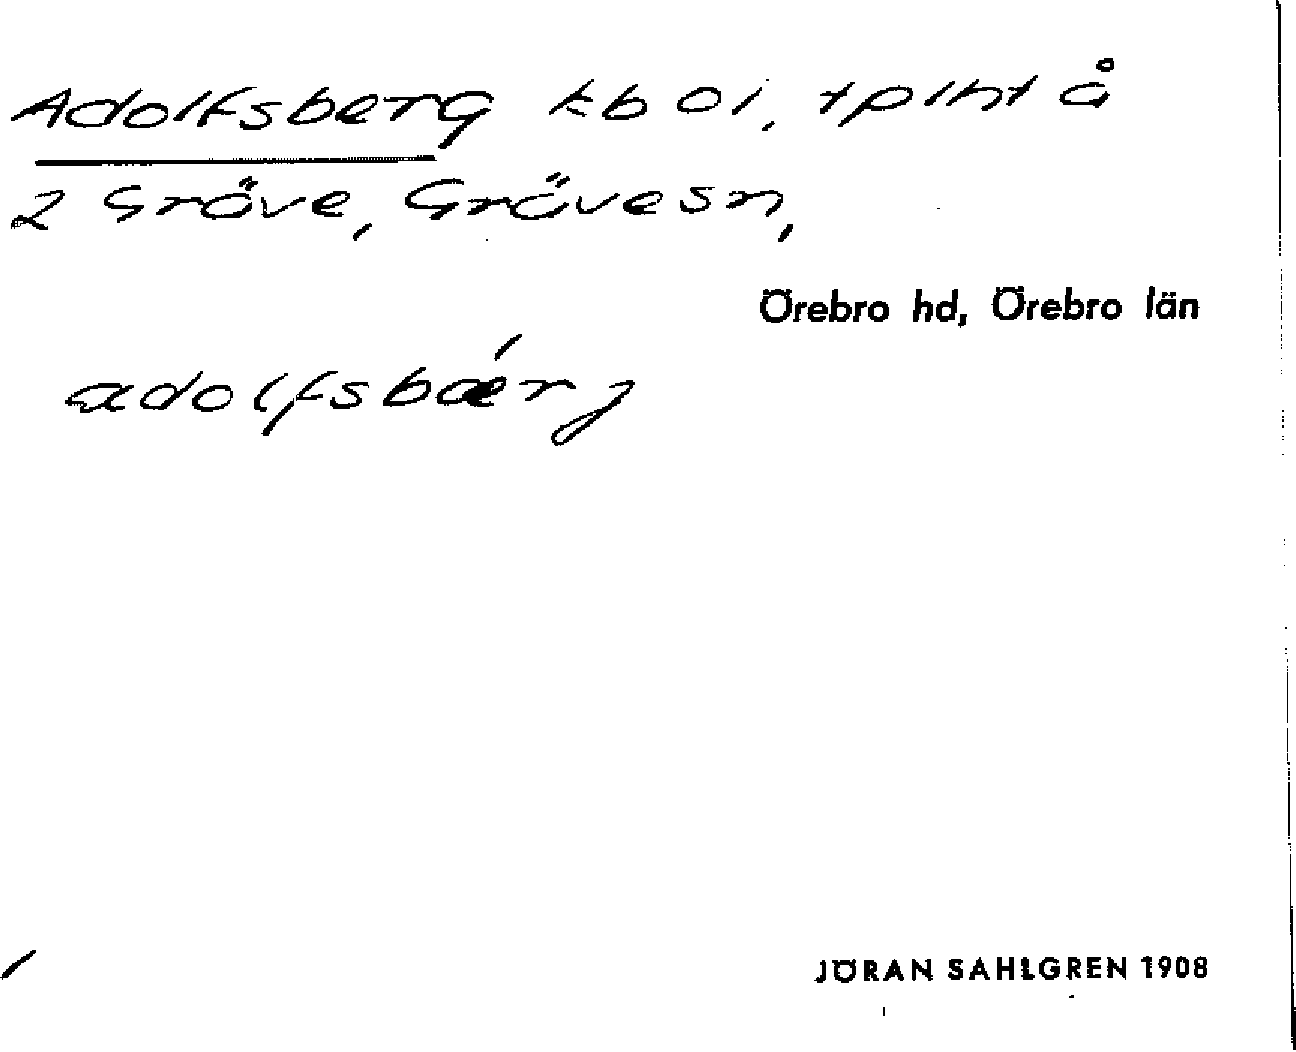 Adolfsberg kb oi, tplht å
2 Gräve, Gräve sn,
Örebro hd, Örebro län
adolfsbærj
JÖRAN SAHLGREN 1908